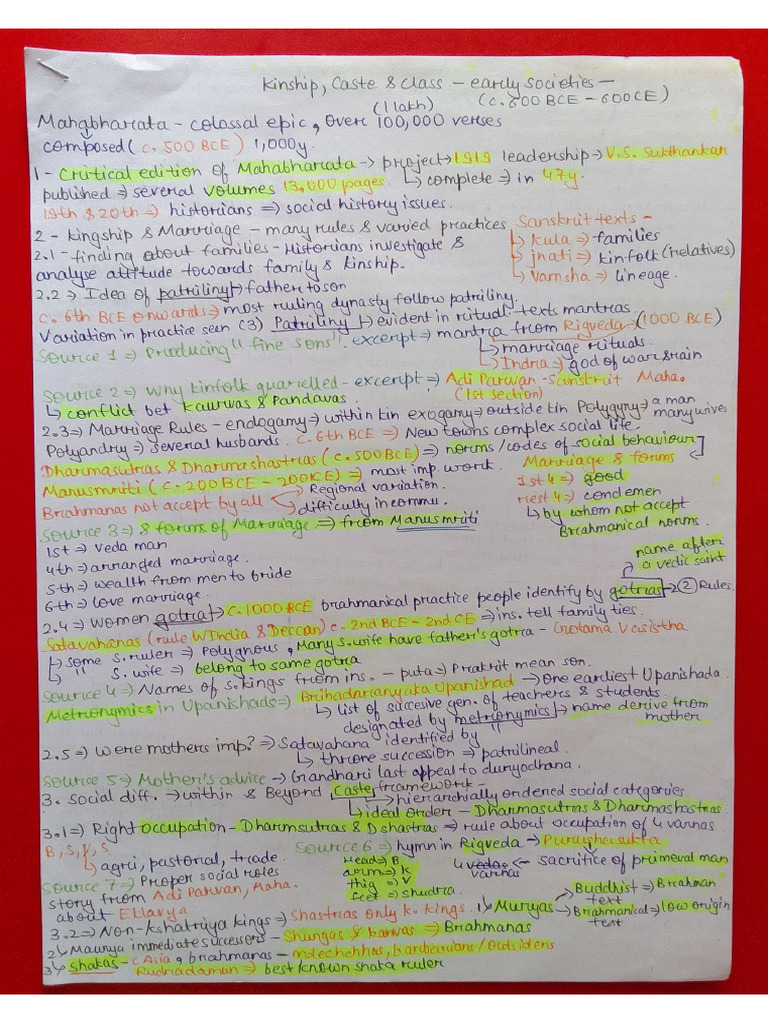 Kinship, Caste & Class – early societies –
(1 lakh) (c. 600 BCE – 600 CE)
Mahabharata – colossal epic, over 100,000 verses
composed (c. 500 BCE) 1,000y.
1 - Critical edition of Mahabharata → project → 1919 leadership → V.S. Sukthankar
published ⇒ several volumes 13,000 pages. ↳ complete ⇒ in 47y.
19th & 20th ⇒ historians ⇒ social history issues.
2 - kingship & Marriage – many rules & varied practices Sanskrit texts –
2.1 - finding about families – Historians investigate & ↳ kula ⇒ families
analyse attitude towards family & kinship. ↳ jnati ⇒ kinfolk (relatives)
↳ vamsha ⇒ lineage.
2.2 ⇒ Idea of patriliny ↳ father to son
c. 6th BCE onwards ⇒ most ruling dynasty follow patriliny.
Variation in practice seen (3) Patriliny ↳ evident in ritual texts mantras
Source 1 ⇒ Producing "fine sons". excerpt ⇒ mantra from Rigveda → (1000 BCE)
↳ marriage rituals.
↳ Indra ⇒ god of war & rain
Source 2 ⇒ why kinfolk quarrelled – excerpt ⇒ Adi Parvan – Sanskrit Maha.
↳ conflict bet Kaurvas & Pandavas. (1st section)
2.3 ⇒ Marriage Rules – endogamy ⇒ within kin exogamy ⇒ outside kin Polygyny ⇒ a man many wives
Polyandry ⇒ several husbands. c. 6th BCE ⇒ New towns complex social life.
Dharmasutras & Dharmashastras (c. 500 BCE) ⇒ norms/codes of social behaviour
Manusmriti (c. 200 BCE – 200 CE) ⇒ most imp. work. Marriage 8 forms
Brahmanas not accept by all Regional variation. 1st 4 ⇒ good
difficulty in commu. rest 4 ⇒ condemen
Source 3 ⇒ 8 forms of Marriage ⇒ from Manusmriti ↳ by whom not accept
Brahmanical norms.
1st ⇒ veda man
4th ⇒ arranged marriage.
5th ⇒ wealth from men to bride
6th ⇒ love marriage.
name after
a vedic
2.4 ⇒ Women gotra ↳ c. 1000 BCE brahmanical practice people identify by gotras → ② Rules.
Satavahanas (rule W India & Deccan) c. 2nd BCE – 2nd CE ⇒ ins. tell family ties.
↳ some s. ruler ⇒ Polygnous, Many s. wife have father's gotra – Gotama Vasistha
↳ " s. wife ⇒ belong to same gotra
Source 4 ⇒ Names of s. kings from ins. – puta ⇒ Prakrit mean son.
Metronymics in Upanishads ⇒ Brihadaranyaka Upanishad → one earliest Upanishada
↳ list of succesive gen. of teachers & students.
designated by metronymics ↳ name derive from
mother
2.5 ⇒ were mothers imp? ⇒ Satavahana identified by "
↳ throne succession ⇒ patrilineal
Source 5 ⇒ Mother's advice → Gandhari last appeal to duryodhana.
3. Social diff. → within & Beyond Caste framework –
↳ hierarchially ordered social categories
↳ ideal order – Dharmasutras & Dharmashastras
3.1 ⇒ Right occupation – Dharmsutras & Dshastras ⇒ rule about occupation of 4 varnas
B, S, V, S Source 6 ⇒ hymn in Rigveda → Purusha sukta
↳ agri, pastoral, trade. Head ⇒ B 4 vedas varnas ← sacrifice of primeval man
Source 7 ⇒ Proper social roles arm ⇒ K
story from Adi Parvan, Maha. thig ⇒ V
about Eklavya feet ⇒ shudra.
3.2 ⇒ Non-kshatriya kings ⇒ Shastras only k. kings. 1↳ Muryas → Buddhist text ⇒ Brahman
→ Brahmanical text ⇒ low origin
2↳ Maurya immediate successors – Shungas & kanvas ⇒ Brahmanas
3↳ Shakas – C Asia, brahmanas – mlechchhas, barbarians/outsiders
Rudradaman ⇒ best known shaka ruler